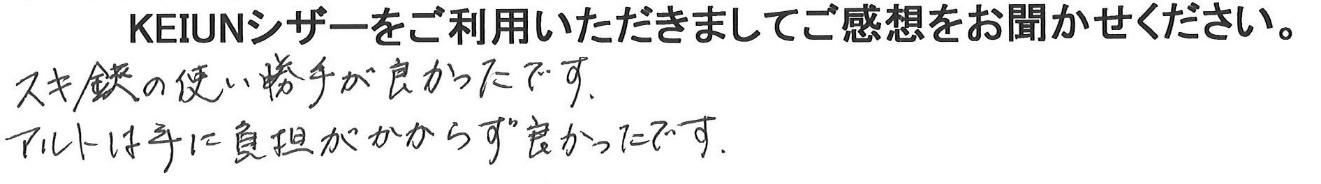 KEIUNシザーをご利用いただきましてご感想をお聞かせください。
スキ鋏の使い勝手が良かったです.
アルトは手に負担がかからず良かったです.